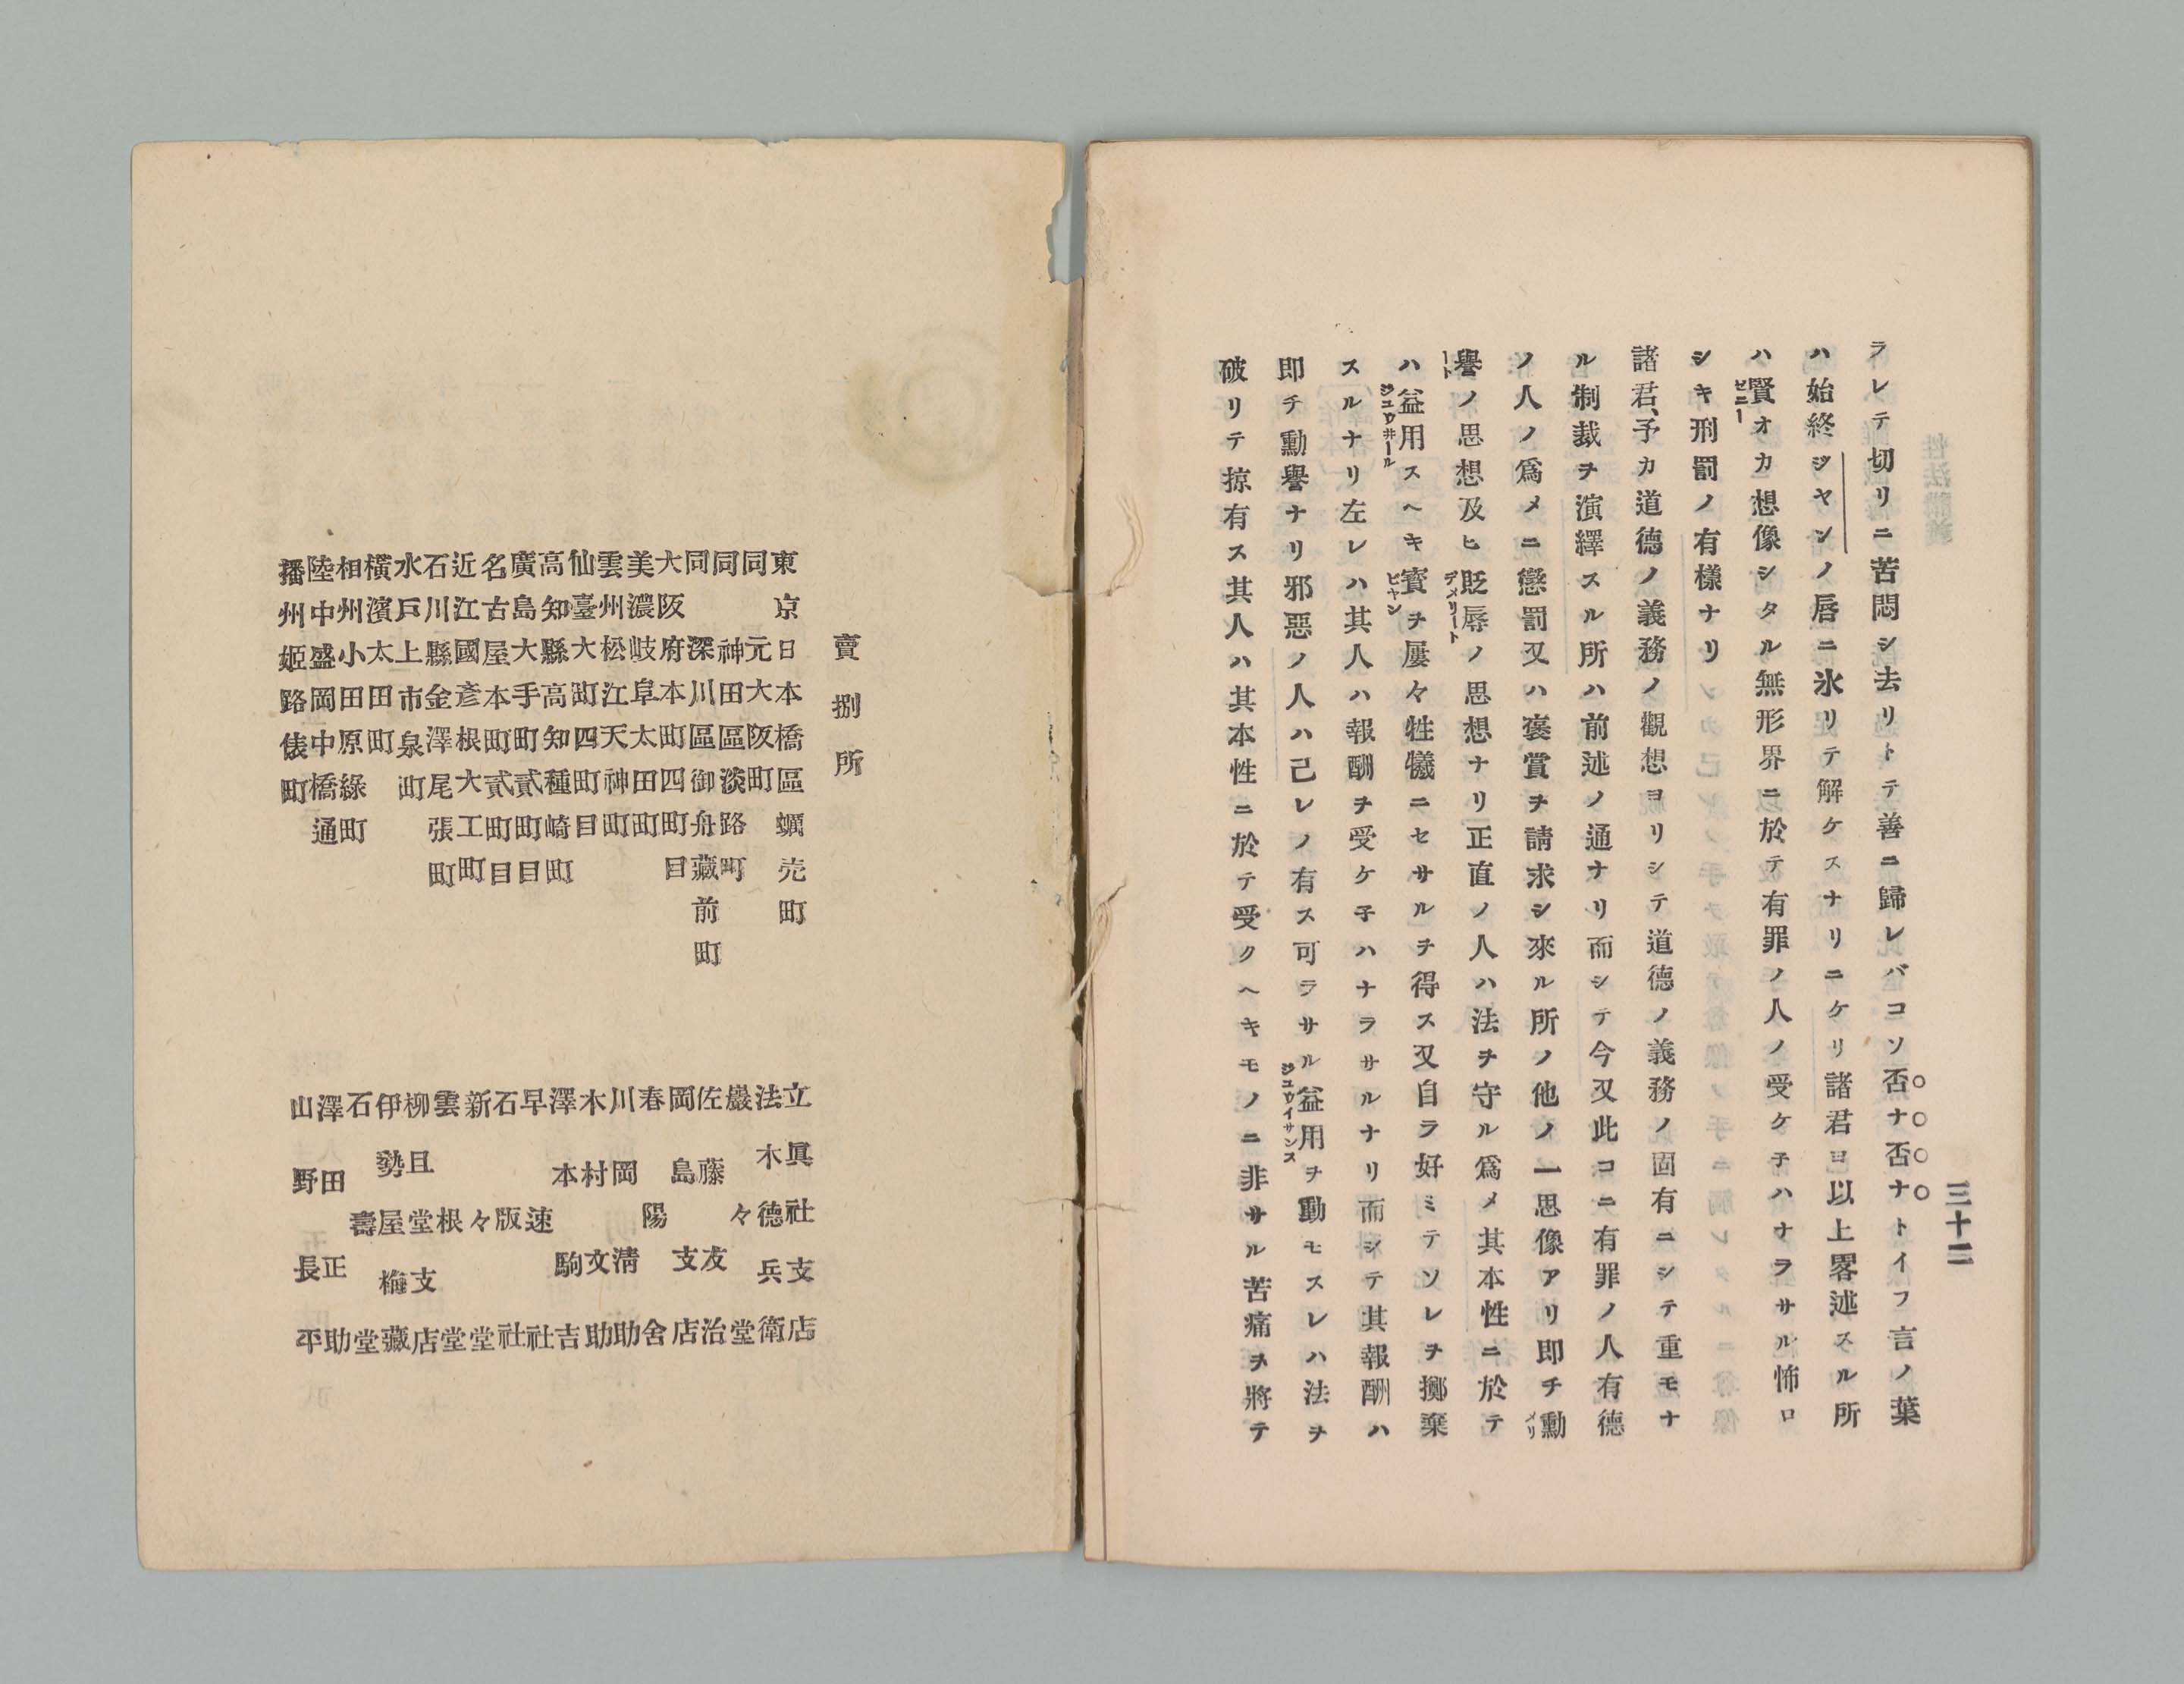 三十二
ラレテ切リニ苦悶シ去リトテ善ニ歸レバコソ否ナ否ナトイフ言ノ葉
ハ始終ジヤンノ唇ニ氷リテ解ケスナリニケリ諸君ヨ以上畧述スル所
ハ賢オカ想像シタル無形界ニ於テ有罪ノ人ノ受ケ子ハナラサル怖ロ
ゼニー
シキ刑罰ノ有樣ナリ
諸君、予カ道德ノ義務ノ觀想ヨリシテ道德ノ義務ノ固有ニシテ重モナ
ル制裁ヲ演繹スル所ハ前述ノ通ナリ而シテ今又此コニ有罪ノ人有德
ノ人ノ爲メニ懲罰又ハ褒賞ヲ請求シ來ル所ノ他ノ一思像アリ即チ勳
メリ
譽ノ思想及ヒ貶辱ノ思想ナリ正直ノ人ハ法ヲ守ル爲メ其本性ニ於テ
ート デメリート
ハ益用スヘキ寳ヲ屢々牲犧ニセサルヲ得ス又自ラ好ミテソレヲ擲棄
ジユウ井ール ビヤン
スルナリ左レハ其人ハ報酬ヲ受ケ子ハナラサルナリ而シテ其報酬ハ
即チ勳譽ナリ邪惡ノ人ハ己レノ有ス可ラサル益用ヲ動モスレハ法ヲ
ジユウイサンス
破リテ掠有ス其人ハ其本性ニ於テ受クヘキモノニ非サル苦痛ヲ將テ
賣捌所
東京日本橋區蠣売町 立眞社支店
同 元大阪町 法木德兵衛
同 神田區淡路町 巖々堂
同 深川區御舟藏前町 佐藤友治
大阪府本町四町目 岡島支店
美濃岐阜太田町 春陽舍
雲州松江天神町 川岡清助
仙臺大町四町目 木村文助
高知縣高知種崎町 澤本駒吉
廣島大手町貳町目 早速社
名古屋本町貳町目 石版社
近江國彥根大工町 新々堂
石川縣金澤尾張町 雲根堂
水戸上市泉町 柳旦堂支店
橫濱太田町 伊勢屋梅藏
相州小田原綠町 石壽堂
陸中盛岡中橋通 澤田正助
播州姬路俵町 山野長平